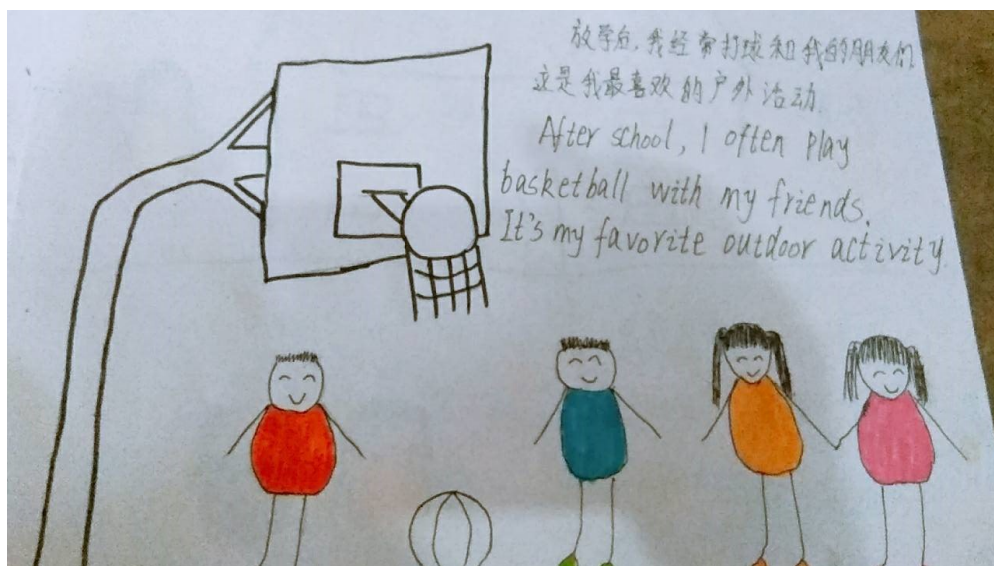 放学后,我经常打球和我的朋友们
这是我最喜欢的户外活动.
After school, I often play
basketball with my friends.
It's my favorite outdoor activity.